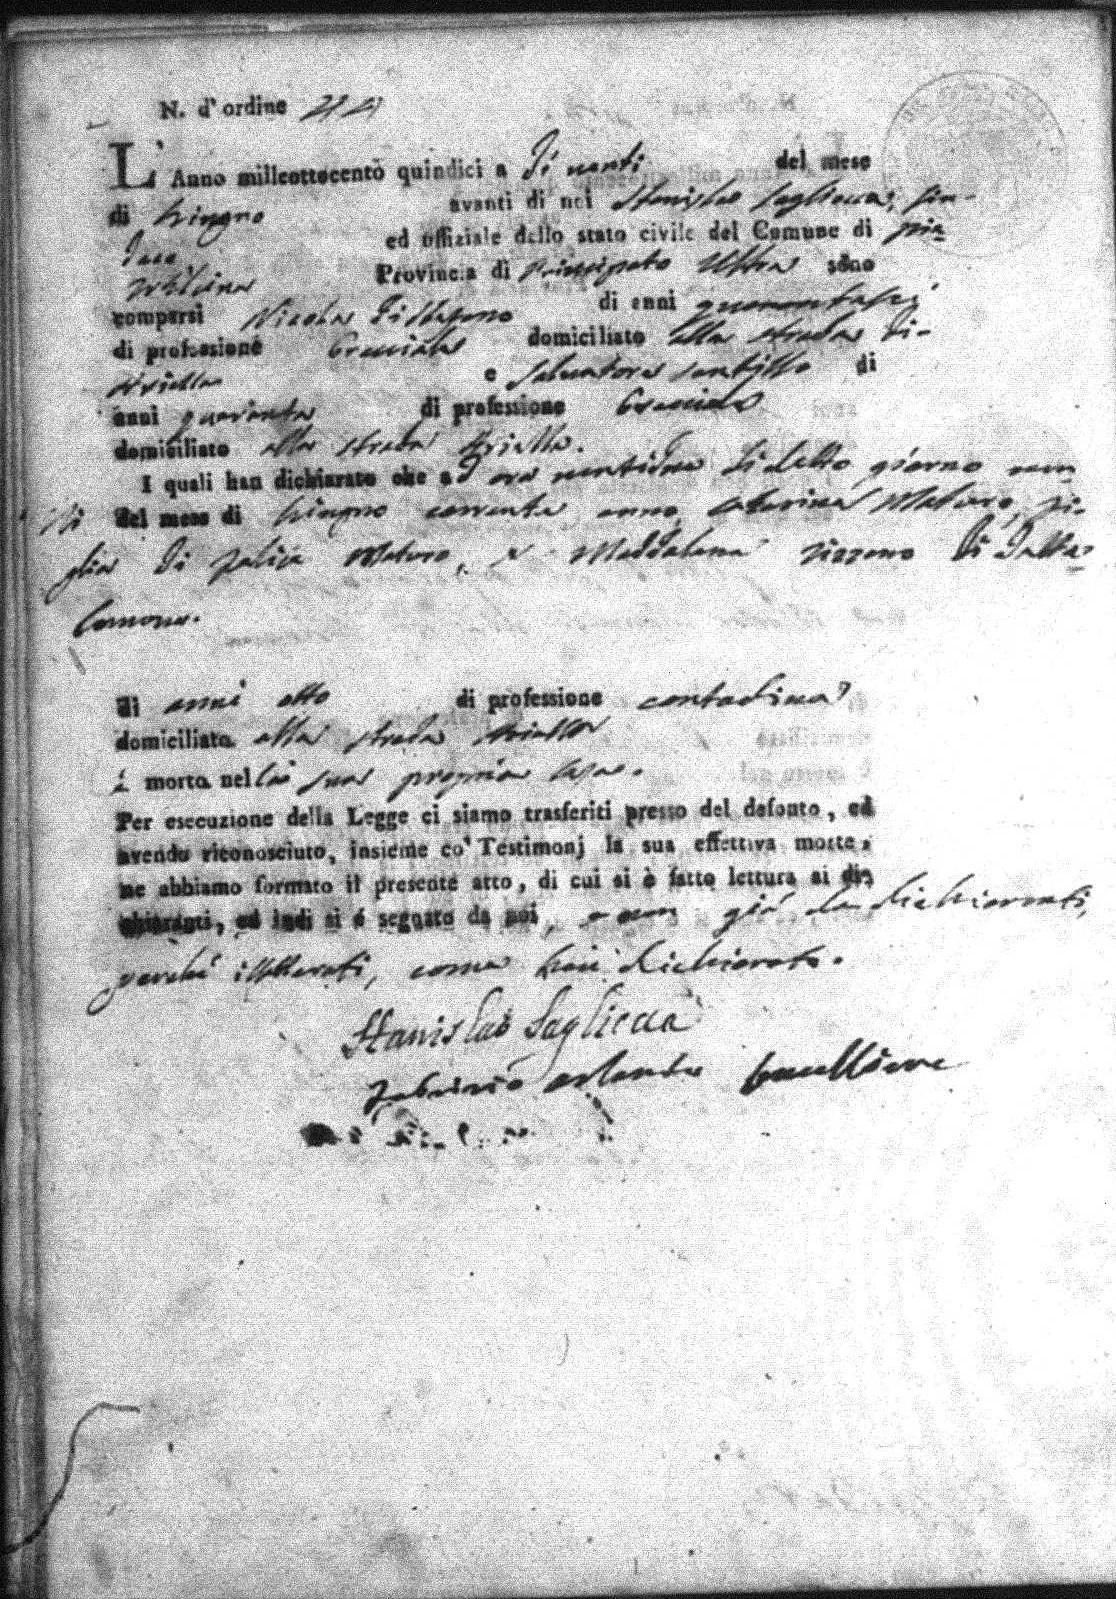 N. d'ordine
L'Anno milleottocento quindici a dì venti del mese
di Giugno avanti di noi Stanislao Sagliocca, Sin-
daco ed offiziale dello stato civile del Comune di
Provincia di Principato Ultra sono
comparsi Nicola di Stefano di anni quarantasei
di professione Bracciale domiciliato alla strada di
Ariella e Salvatore Santillo di
anni quaranta di professione Bracciale
domiciliato alla strada Ariella.
I quali han dichiarato che ad ora ventidue di detto giorno ven-
ti del mese di Giugno corrente anno, Caterina Maturo, fi-
glia di Felice Maturo, e Maddalena di detta
Comune.
di anni otto di professione contadina
domiciliata alla strada Ariella
è morta nella sua propria casa.
Per esecuzione della Legge ci siamo trasferiti presso del defonto, ed
avendo riconosciuto, insieme co' Testimonj la sua effettiva morte,
ne abbiamo formato il presente atto, di cui si è fatto lettura ai di-
chiaranti, ed indi si è segnato da noi, e non già da dichiaranti,
perchè illetterati, come han dichiarato.
Stanislao Sagliocca
Fabrizio Orlando Cancelliere